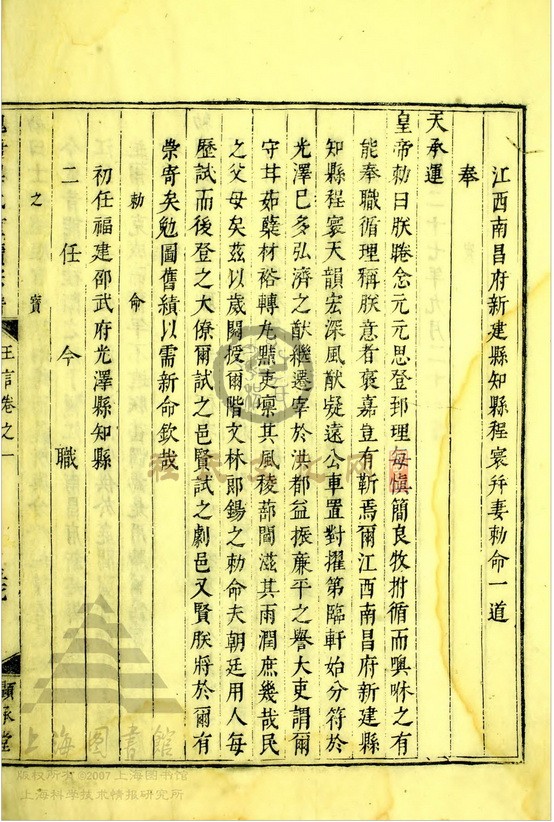 江西南昌府新建縣知縣程寰并妻勅命一道
奉
天承運
皇帝勅曰朕睠念元元思登郅理每慎簡良牧拊循而噢咻之有
能奉職循理稱朕意者褒嘉豈有靳焉爾江西南昌府新建縣
知縣程寰天韻宏深風猷凝遠公車置對擢第臨軒始分符於
光澤已多弘濟之猷繼遷宰於洪都益振亷平之譽大吏謂爾
守甘茹蘗材裕轉丸黠吏凜其風稜蔀閭滋其雨潤庶幾哉民
之父母矣茲以歲閱授爾階文林郎錫之勅命夫朝廷用人每
歷試而後登之大僚爾試之邑賢試之劇邑又賢朕將於爾有
崇寄矣勉圖舊績以需新命欽哉
勅命
初任福建邵武府光澤縣知縣
二任今職
之寶
王言卷之一
顯承堂
上海图书馆
版权所有©2007上海图书馆
上海科学技术情报研究所